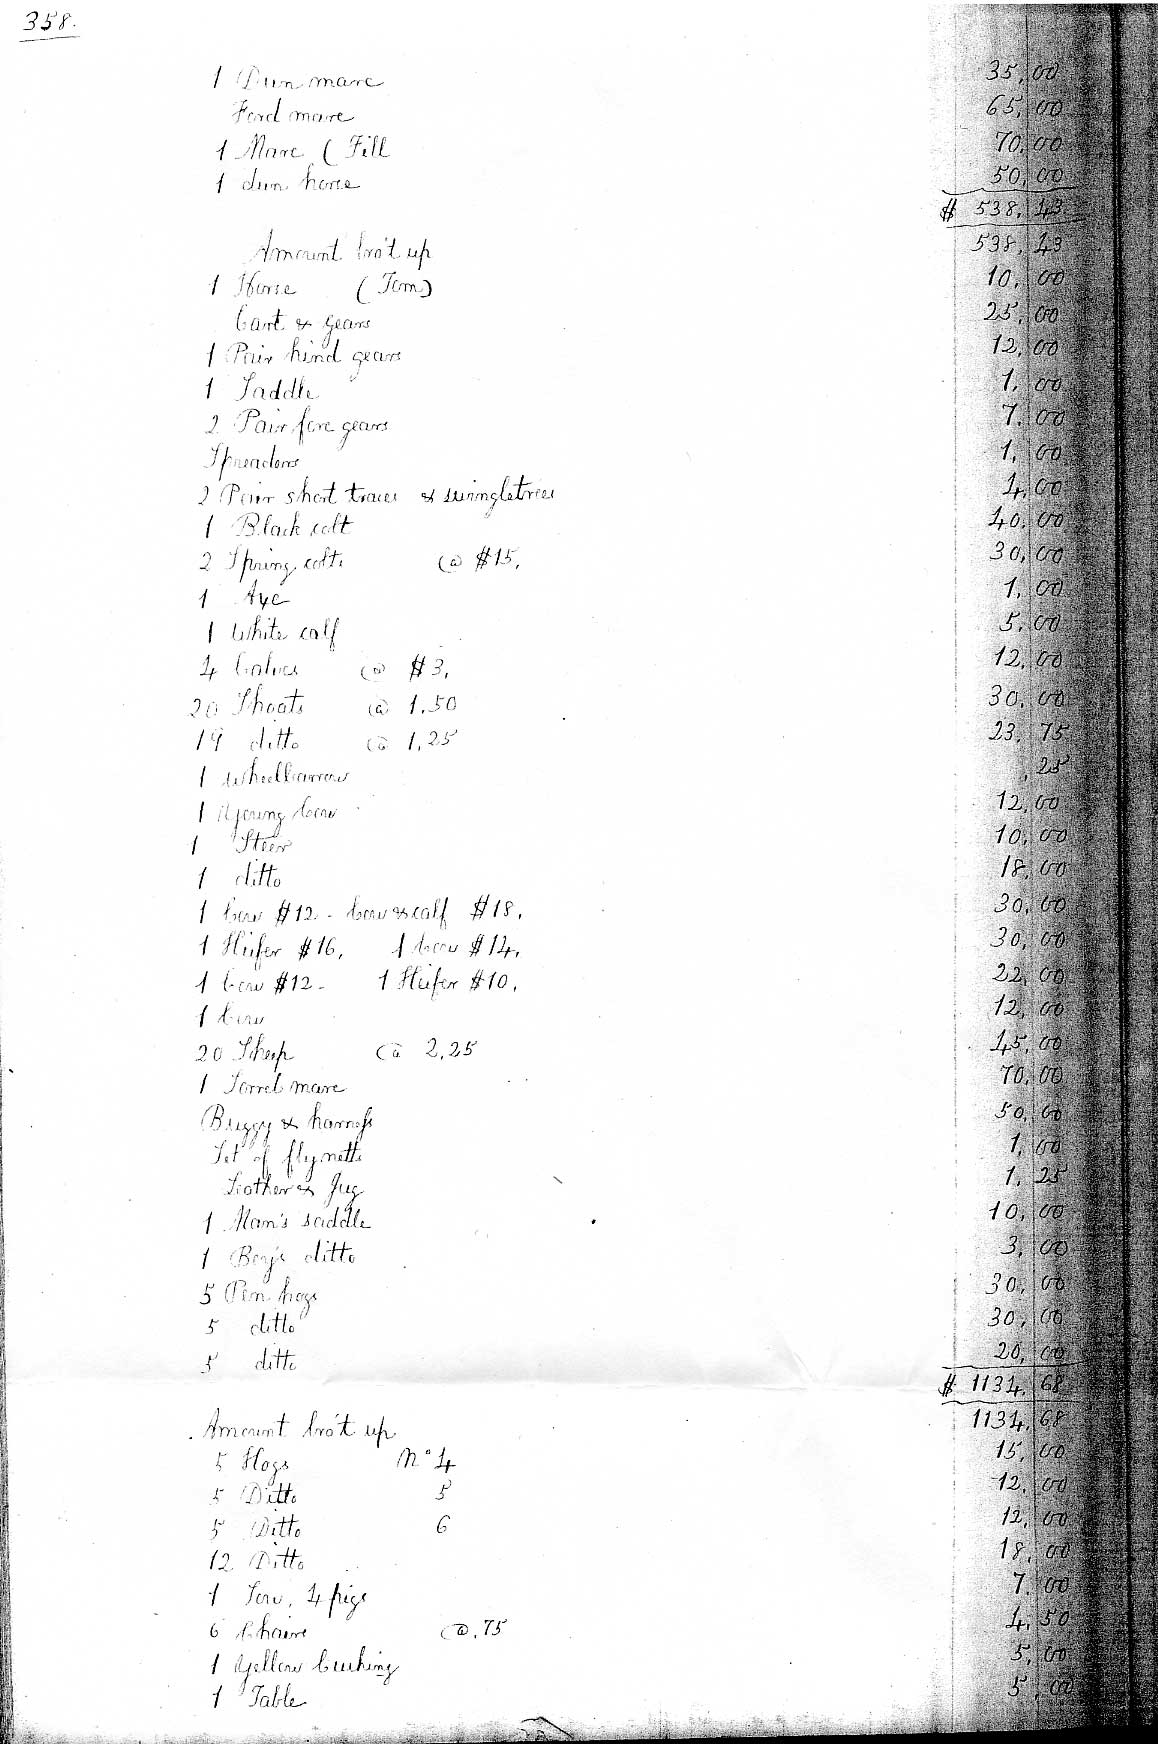 358.
1 Dun mare 35,00
Ford mare 65,00
1 Mare (Fill 70,00
1 dun horse 50,00
$ 538,43
Amount bro't up 538,43
1 Horse (Tom) 10,00
Cart & gears 25,00
1 Pair hind gears 12,00
1 Saddle 1,00
2 Pair fore gears 7,00
Spreaders 1,00
2 Pair short traces & swingletrees 4,00
1 Black colt 40,00
2 Spring colts @ $15, 30,00
1 Axe 1,00
1 White calf 5,00
4 Calves @ $3, 12,00
20 Shoats @ 1,50 30,00
19 ditto @ 1,25 23,75
1 Wheelbarrow ,25
1 Young Cow 12,00
1 Steer 10,00
1 ditto 18,00
1 Cow $12 - Cow & calf $18, 30,00
1 Heifer $16, 1 Cow $14, 30,00
1 Cow $12 - 1 Heifer $10, 22,00
1 Cow 12,00
20 Sheep @ 2,25 45,00
1 Sorrel mare 70,00
Buggy & harness 50,00
Set of flynetts 1,00
Leather & Jug 1,25
1 Man's saddle 10,00
1 Boy's ditto 3,00
5 Pen hogs 30,00
5 ditto 30,00
5 ditto 20,00
$ 1134,68
Amount bro't up 1134,68
5 Hogs No 4 15,00
5 Ditto 5 12,00
5 Ditto 6 12,00
12 Ditto 18,00
1 Sow, 4 pigs 7,00
6 Chairs @ ,75 4,50
1 Yellow Cushing 5,00
1 Table 5,00